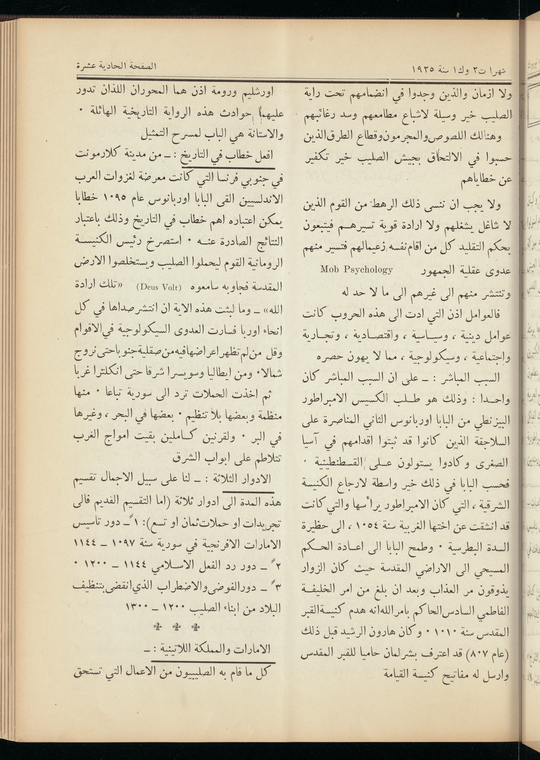 شهرا ت٢ وك١ سنة ١٩٣٥
الصفحة الحادية عشرة
ولا ازمان والذين وجدوا في انضمامهم تحت راية
الصليب خير وسيلة لاشباع مطامعهم وسد رغائبهم
وهنالك اللصوص والمجرمون وقطاع الطرق الذين
حسبوا في الالتحاق بجيش الصليب خير تكفير
عن خطاياهم
ولا يجب ان ننسى ذلك الرهط من القوم الذين
لا شاغل يشغلهم ولا ارادة قوية تسيرهم فيتبعون
بحكم التقليد كل من اقام نفسه زعيما لهم فتسير منهم
عدوى عقلية الجمهور Mob Psychology
وتنتشر منهم الى غيرهم الى ما لا حد له
فالعوامل اذن التي ادت الى هذه الحروب كانت
عوامل دينية ، وسياسية ، واقتصادية ، وتجارية
واجتماعية ، وسيكولوجية ، مما لا يهون حصره
السبب المباشر : ــ على ان السبب المباشر كان
واحدا : وذلك هو طلب الكسيس الامبراطور
البيزنطي من البابا اوربانوس الثاني المناصرة على
السلاجقة الذين كانوا قد ثبتوا اقدامهم في آسيا
الصغرى وكادوا يستولون على القسطنطينية ٠
فحسب البابا في ذلك خير واسطة لارجاع الكنيسة
الشرقية ، التي كان الامبراطور يرأسها والتي كانت
قد انشقت عن اختها الغربية سنة ١٠٥٤ ، الى حظيرة
السدة البطرسية ٠ وطمح البابا الى اعادة الحكم
المسيحي الى الاراضي المقدسة حيث كان الزوار
يذوقون مر العذاب وبعد ان بلغ من امر الخليفة
الفاطمي السادس الحاكم بامر الله انه هدم كنيسة القبر
المقدس سنة ١٠١٠ ٠ وكان هارون الرشيد قبل ذلك
(عام ٨٠٧) قد اعترف بشرلمان حاميا للقبر المقدس
وارسل له مفاتيح كنيسة القيامة
اورشليم ورومة اذن هما المحوران اللذان تدور
عليهما حوادث هذه الرواية التاريخية الهائلة ٠
والاستانة هي الباب لمسرح التمثيل
افعل خطاب في التاريخ : ــ من مدينة كلارمونت
في جنوبي فرنسا التي كانت معرضة لغزوات العرب
الاندلسيين القى البابا اوربانوس عام ١٠٩٥ خطابا
يمكن اعتباره اهم خطاب في التاريخ وذلك باعتبار
النتائج الصادرة عنه ٠ استصرخ رئيس الكنيسة
الرومانية القوم ليحملوا الصليب ويستخلصوا الارض
المقدسة فجاوبه سامعوه (Deus Volt) «تلك ارادة
الله» ــ وما لبثت هذه الاية ان انتشر صداها في كل
انحاء اوربا فسارت العدوى السيكولوجية في الاقوام
وقل من لم تظهر اعراضها فيه من صقلية جنوبا حتى نروج
شمالا ٠ ومن ايطاليا وسويسرا شرقا حتى انكلترا غربا
ثم اخذت الحملات ترد الى سورية تباعا ٠ منها
منظمة وبعضها بلا تنظيم ٠ بعضها في البحر ، وغيرها
في البر ٠ ولقرنين كاملين بقيت امواج الغرب
تتلاطم على ابواب الشرق
الادوار الثلاثة : ــ لنا على سبيل الاجمال تقسيم
هذه المدة الى ادوار ثلاثة (اما التقسيم القديم فالى
تجريدات او حملات ثمان او تسع) : ١ً ــ دور تاسيس
الامارات الافرنجية في سورية سنة ١٠٩٧ ــ ١١٤٤
٢ً ــ دور رد الفعل الاسلامي ١١٤٤ ــ ١٢٠٠ ٠
٣ً ــ دور الفوضى والاضطراب الذي انقضى بتنظيف
البلاد من ابناء الصليب ١٢٠٠ ــ ١٣٠٠
الامارات والمملكة اللاتينية : ــ
كل ما قام به الصليبيون من الاعمال التي تستحق